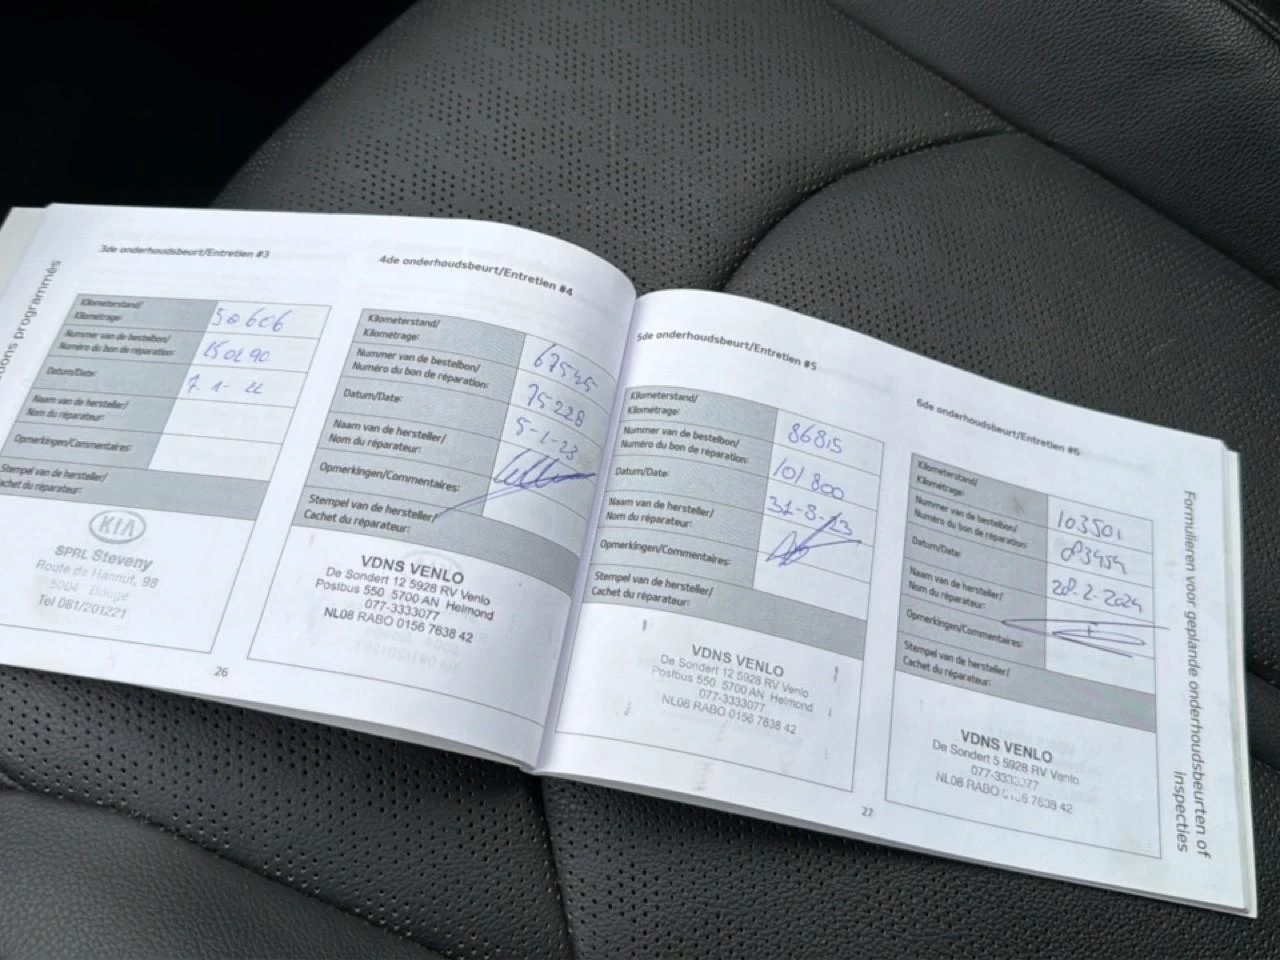 ions programmés
3de onderhoudsbeurt/Entretien #3
Kilometerstand/
Kilométrage:
50606
Nummer van de bestelbon/
Numéro du bon de réparation:
Datum/Date:
Naam van de hersteller/
Nom du réparateur:
Opmerkingen/Commentaires:
Stempel van de hersteller/
Cachet du réparateur:
KIA
SPRL Steveny
Route de Hannut, 98
5004 Bouge
Tel 081/201221
26
4de onderhoudsbeurt/Entretien #4
Kilometerstand/
Kilométrage:
67545
Nummer van de bestelbon/
Numéro du bon de réparation:
75228
Datum/Date:
5-1-23
Naam van de hersteller/
Nom du réparateur:
Opmerkingen/Commentaires:
Stempel van de hersteller/
Cachet du réparateur:
VDNS VENLO
De Sondert 12 5928 RV Venlo
Postbus 550 5700 AN Helmond
077-3333077
NL08 RABO 0156 7638 42
5de onderhoudsbeurt/Entretien #5
Kilometerstand/
Kilométrage:
86815
Nummer van de bestelbon/
Numéro du bon de réparation:
101800
Datum/Date:
31-8-23
Naam van de hersteller/
Nom du réparateur:
Opmerkingen/Commentaires:
Stempel van de hersteller/
Cachet du réparateur:
VDNS VENLO
De Sondert 12 5928 RV Venlo
Postbus 550 5700 AN Helmond
077-3333077
NL08 RABO 0156 7638 42
27
6de onderhoudsbeurt/Entretien #6
Kilometerstand/
Kilométrage:
103501
Nummer van de bestelbon/
Numéro du bon de réparation:
83454
Datum/Date:
28-2-2024
Naam van de hersteller/
Nom du réparateur:
Opmerkingen/Commentaires:
Stempel van de hersteller/
Cachet du réparateur:
VDNS VENLO
De Sondert 5 5928 RV Venlo
077-3333077
NL08 RABO 0156 7638 42
Formulieren voor geplande onderhoudsbeurten of
inspecties